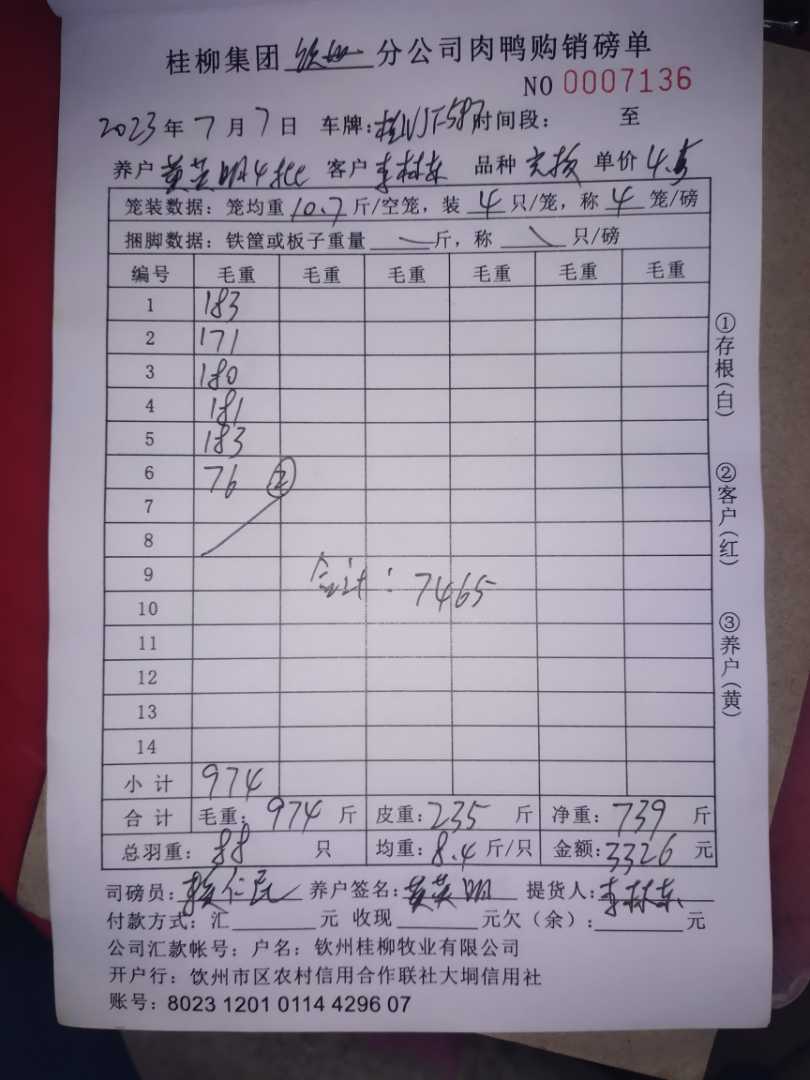 桂柳集团 钦州 分公司肉鸭购销磅单
NO 0007136
2023 年 7 月 7 日 车牌: 时间段: 至
养户 黄英明4批 客户 李林东 品种 单价 4.5
笼装数据: 笼均重 10.7 斤/空笼, 装 4 只/笼, 称 4 笼/磅
捆脚数据: 铁筐或板子重量 斤, 称 只/磅
编号 毛重 毛重 毛重 毛重 毛重 毛重
1 183
2 171
3 180
4 181
5 183
6 76 ②
7
8
9 合计: 7465
10
11
12
13
14
小 计 974
合 计 毛重: 974 斤 皮重: 235 斤 净重: 739 斤
总羽重: 88 只 均重: 8.4 斤/只 金额: 3326 元
司磅员: 仁民 养户签名: 黄英明 提货人: 李林东
付款方式: 汇 元 收现 元欠(余): 元
公司汇款帐号: 户名: 钦州桂柳牧业有限公司
开户行: 饮州市区农村信用合作联社大垌信用社
账号: 8023 1201 0114 4296 07
①存根(白)
②客户(红)
③养户(黄)